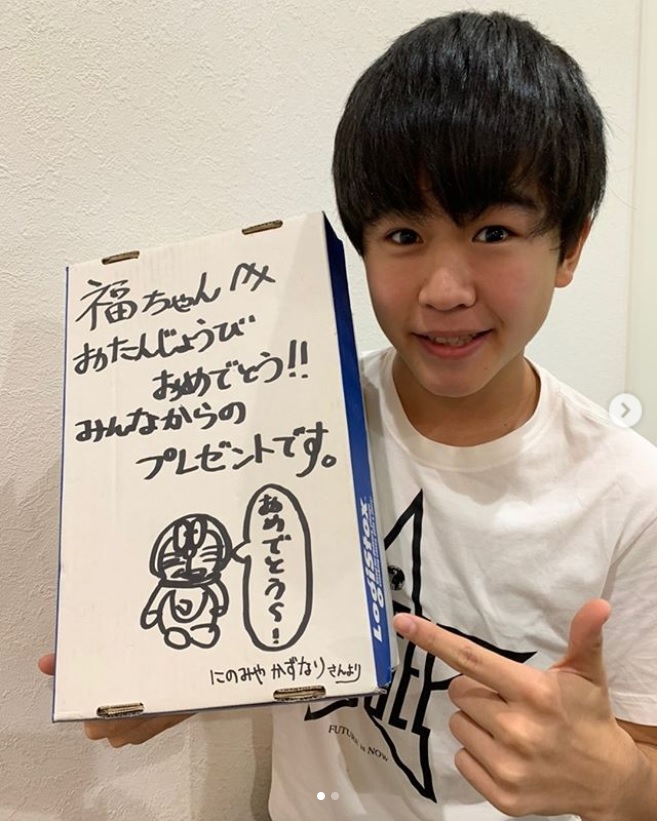 福ちゃん
おたんじょうび
おめでとう!!
みんなからの
プレゼントです。
おめでとう〜!
にのみや かずなり さんより
Logistox
FUTURE is NOW